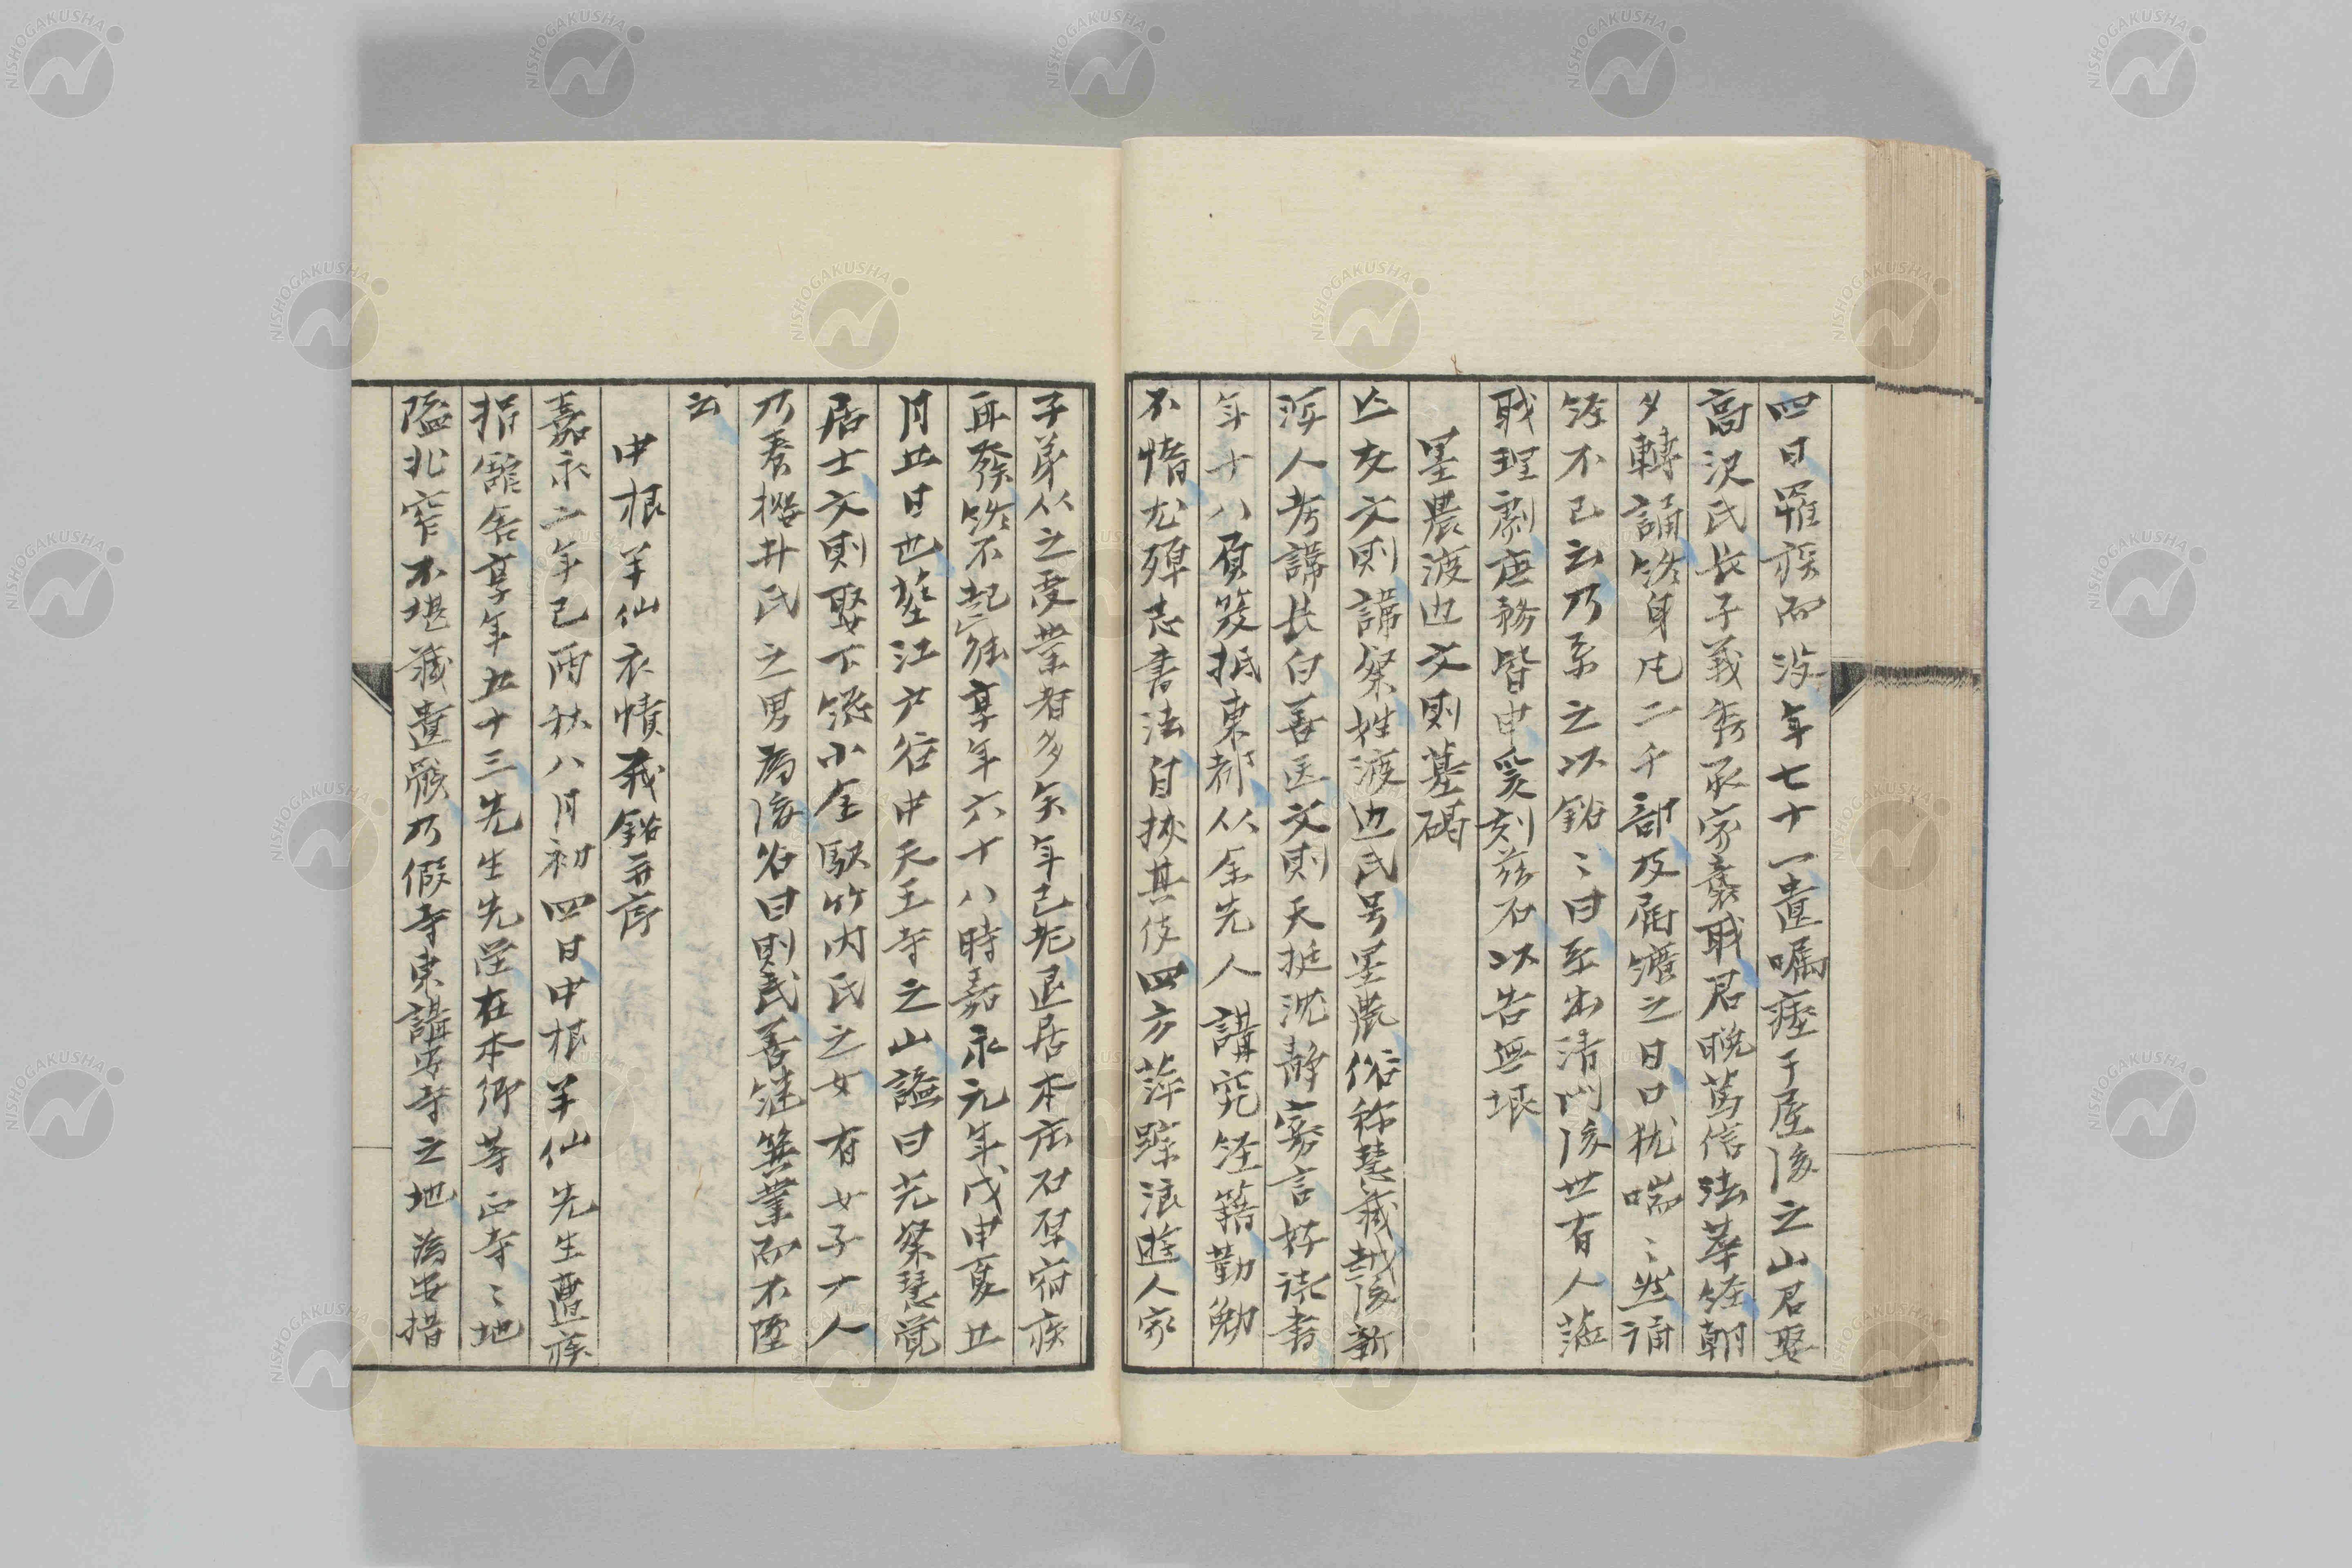 四日罹疾而沒年七十一遺囑瘞于屋後之山君娶
高沢氏長子義秀承家襲職君晩篤信法華経朝
夕轉誦終身凡二千部及属纊之日口猶喘〻然誦
経不已云乃系之以銘〻曰系出清門後世有人蒞
職理劇庶務皆申爰刻茲石以告無垠
墨農渡辺文則墓碣
亡友文則諱粲姓渡辺氏号墨農俗称慧蔵越後新
潟人考諱長白善医文則天挺沈静寡言好読書
年十八負笈抵東都从余先人講究経籍勤勉
不惰尤殫志書法自挾其伎四方萍蹤浪遊人家
子弟从之受業者多矣年已老退居本庄石原宿疾
再發終不起云享年六十八時嘉永元年戊申夏五
月五日也塟江戸谷中天王寺之山諡曰光粲慧覚
居士文則娶下総小金駅竹内氏之女有女子一人
乃養櫻井氏之男為後名曰則民善継箕業而不墜
云
中根半仙衣幘蔵銘并序
嘉永二年己酉秋八月初四日中根半仙先生遘疾
捐館舎享年五十三先生先塋在本郷等正寺〻地
隘北窄不堪蔵遺骸乃假寺東講安寺之地為安措